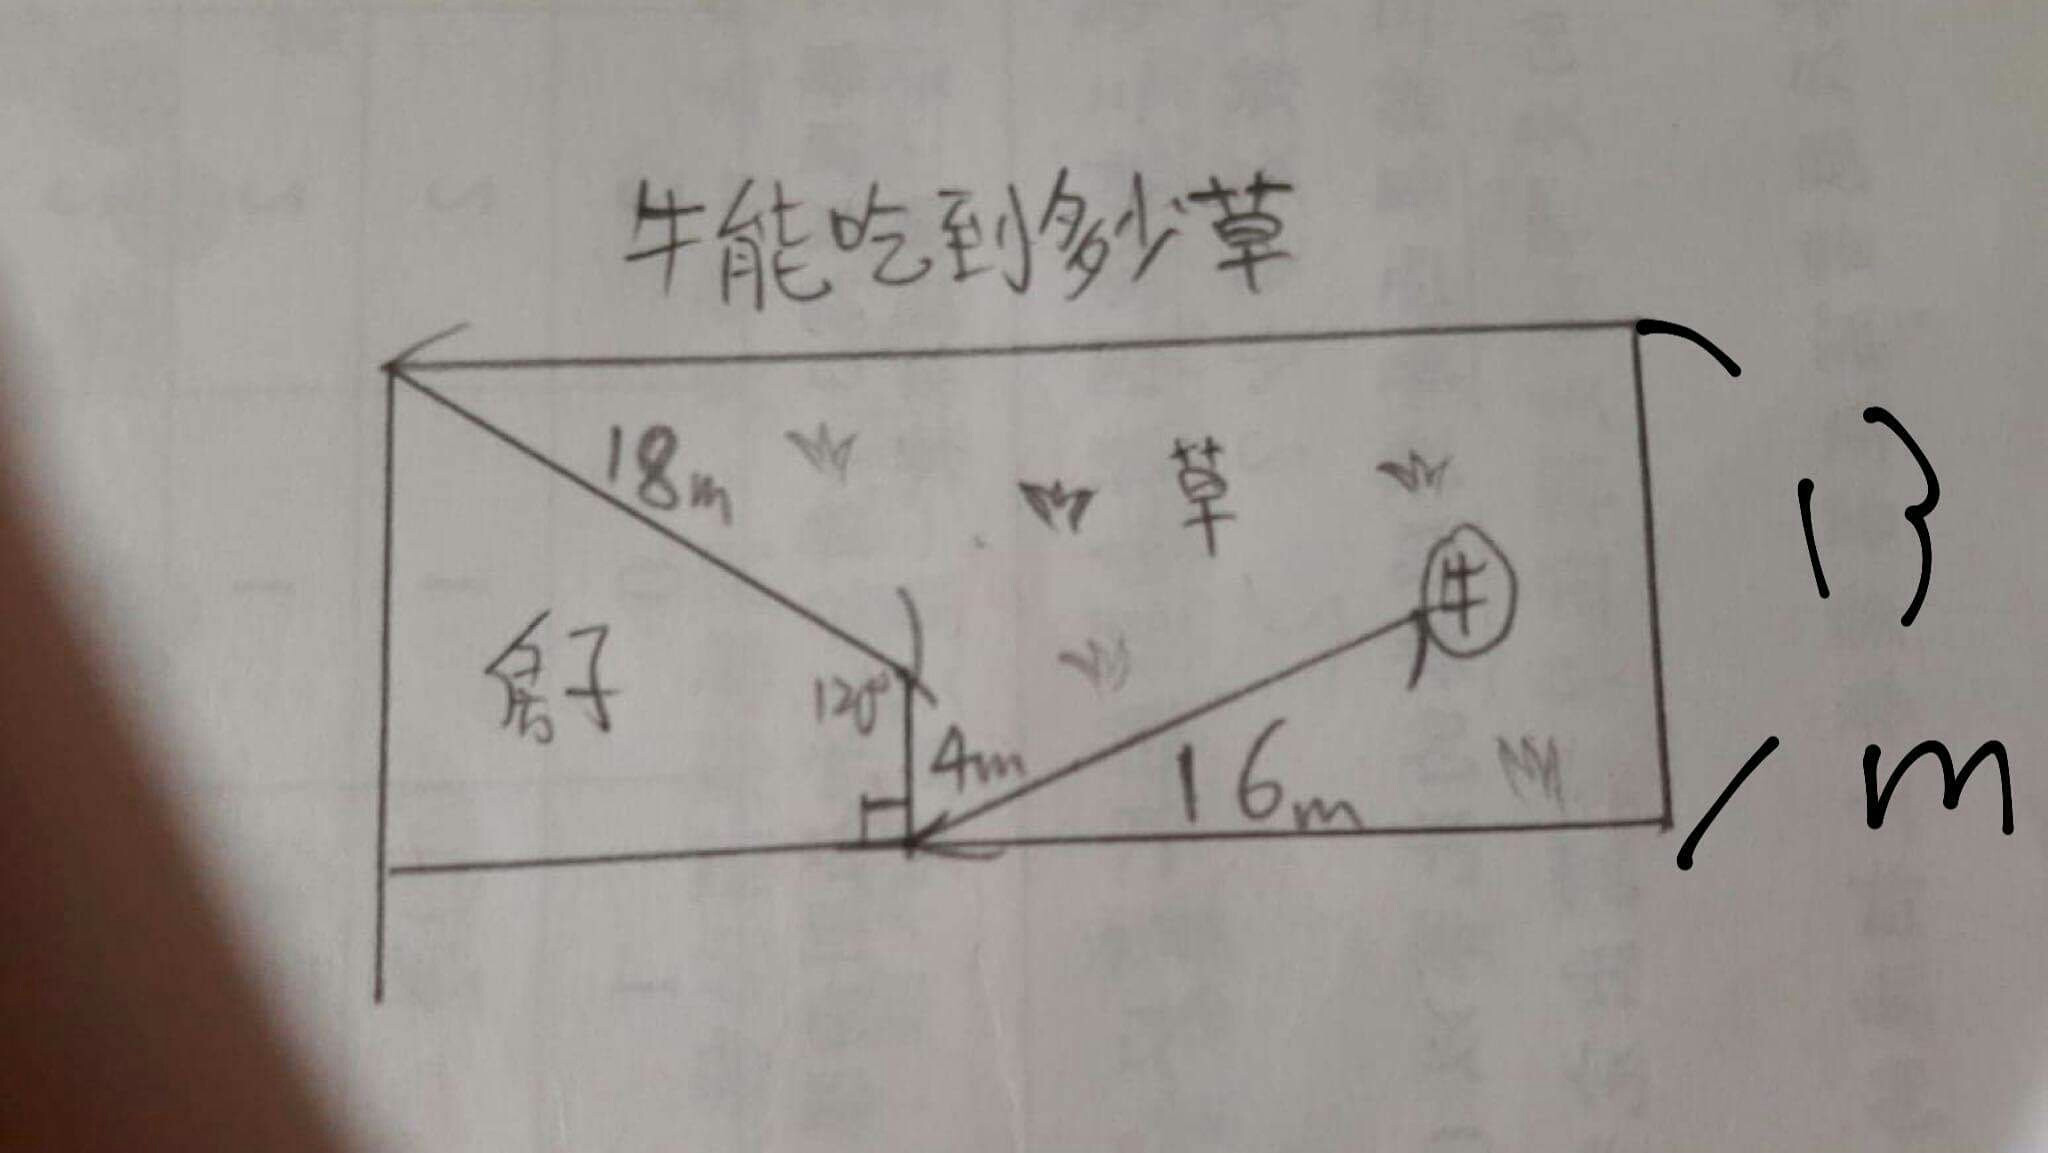 牛能吃到多少草
18m
草
牛
13m
房子
120°
4m
16m